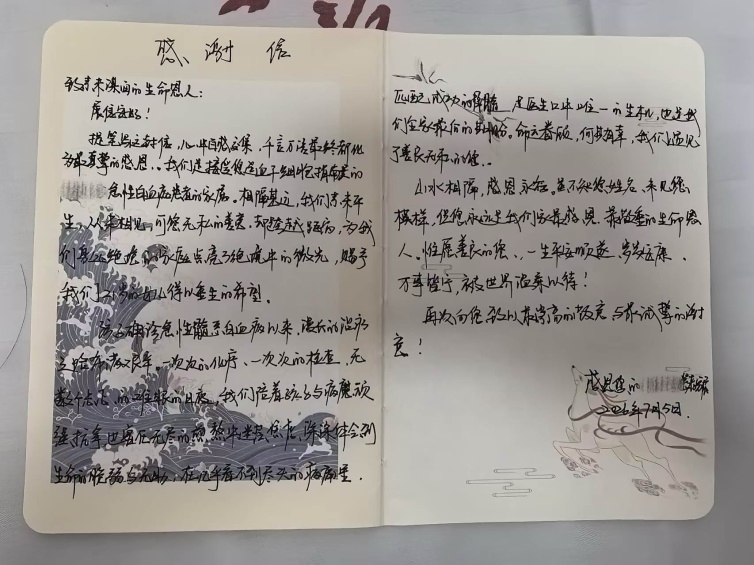 感谢信
致素未谋面的生命恩人：
展信安好！
提笔写这封信，心中百感交集，千言万语最终都化
为最真挚的感恩。我们是接受您造血干细胞捐献的
急性白血病患者的家属。相隔甚远，我们素未平
生，从未相见，可您无私的善意，却跨越距离，为我
们身处绝境的家庭点亮了绝境中的微光，赐予
我们的女儿得以重生的希望。
孩子确诊急性髓系白血病以来，漫长的治疗
之路布满艰辛。一次次的化疗、一次次的检查，无
数个去活的难眠的日夜，我们陪着孩子与病魔顽
强抗争也
生命的脆弱与无助，在几乎看不到尽头的病房里，
匹配成功的骨髓 是医生口中唯一的生机，也是我
们全家最后的期盼。命运眷顾，何其有幸，我们遇见
了善良无私的您。
山水相隔，感恩永在。虽不知您姓名，未见您
模样，但您永远是我们家最感恩、最敬重的生命恩
人。惟愿善良的您，一生平安顺遂、岁岁安康、
万事皆宁，被世界温柔以待！
再次向您致以最崇高的敬意与最诚挚的谢
意！
感恩您的
2026年7月5日.